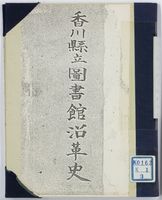 香川縣立圖書館沿革史
K0162